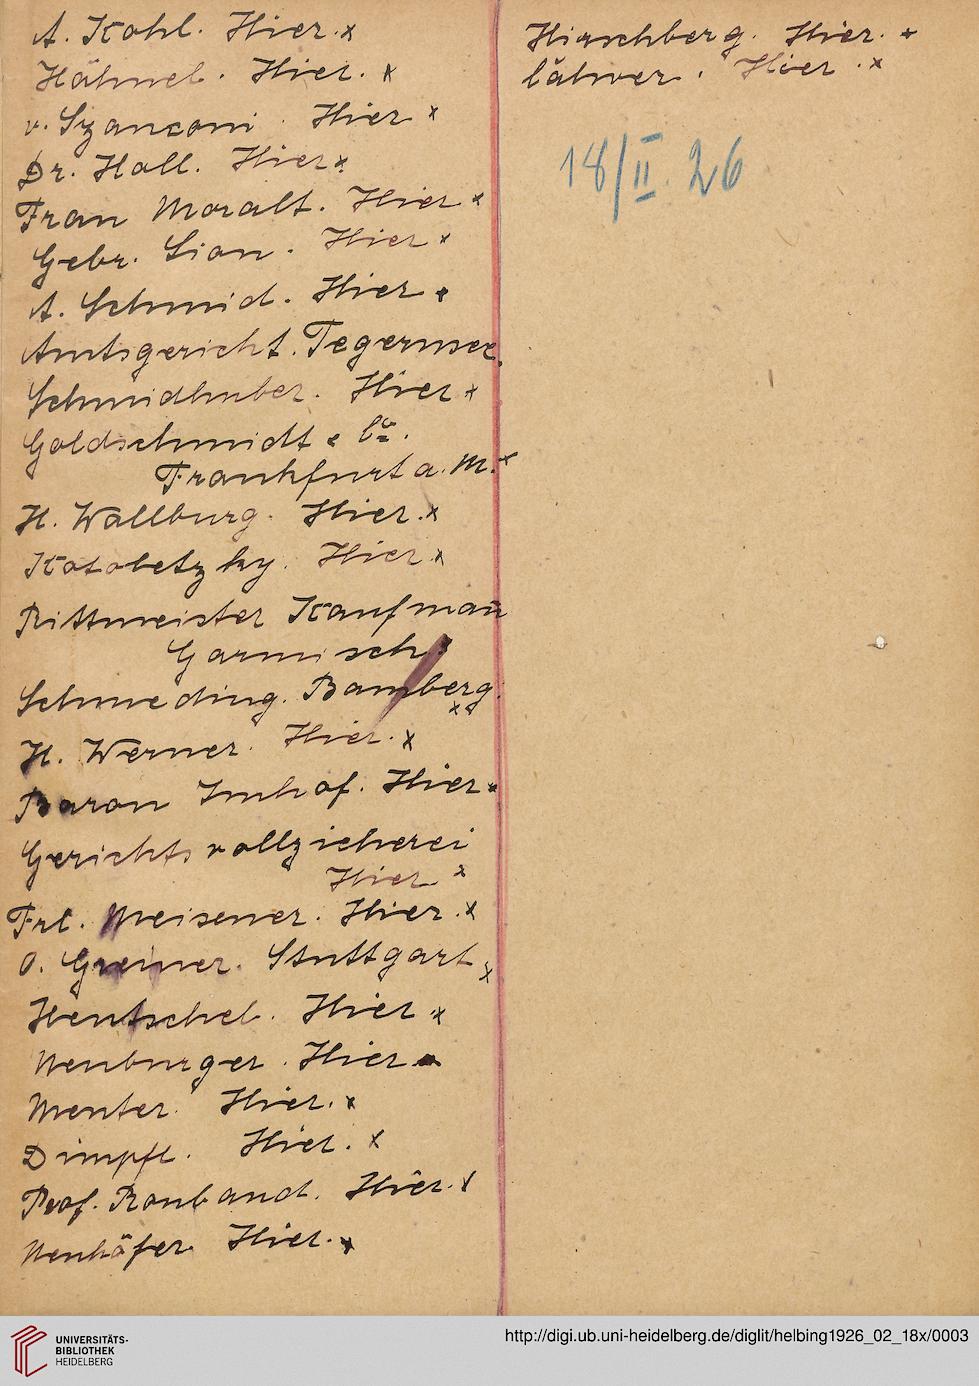 A. Kohl. Hier. x
Hähnel. Hier. x
v. Szanconi. Hier x
Dr. Holl. Hier x
Frau Moralt. Hier x
Gebr. Sion. Hier x
A. Schmid. Hier x
Amtsgericht. Tegernsee.
Schmidhuber. Hier x
Goldschmidt & Co.
Frankfurt a. M. x
H. Wallburg. Hier. x
Kotobetzky. Hier x
Rittmeister Kaufmañ
Garmisch x
Schmeding. Bamberg.
x x
H. Werner. Hier. x
Baron Imhof. Hier x
Gerichtsvollzieherei
Hier x
Frl. Meisener. Hier. x
O. Greiner. Stuttgart x
Hentschel. Hier x
Neuburger. Hier
Menter. Hier. x
Dimpfl. Hier. x
Prof. Roubaud. Hier. x
Neuhöfer. Hier. x
Hirschberg. Hier. x
Hier. x
18/II. 26
UNIVERSITÄTS-
BIBLIOTHEK
HEIDELBERG
http://digi.ub.uni-heidelberg.de/diglit/helbing1926_02_18x/0003